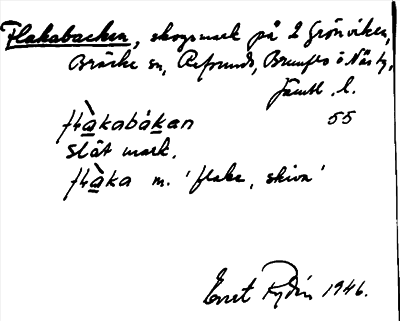 Flakabacken, skogsmark på 2 Grönviken,
Bräcke sn, Refsunds, Brunflo o Näs tg,
Jämtl. l.
flàkabákan 55
slät mark.
flàka m. 'flake, skiva'
Ernst Rydén 1946.